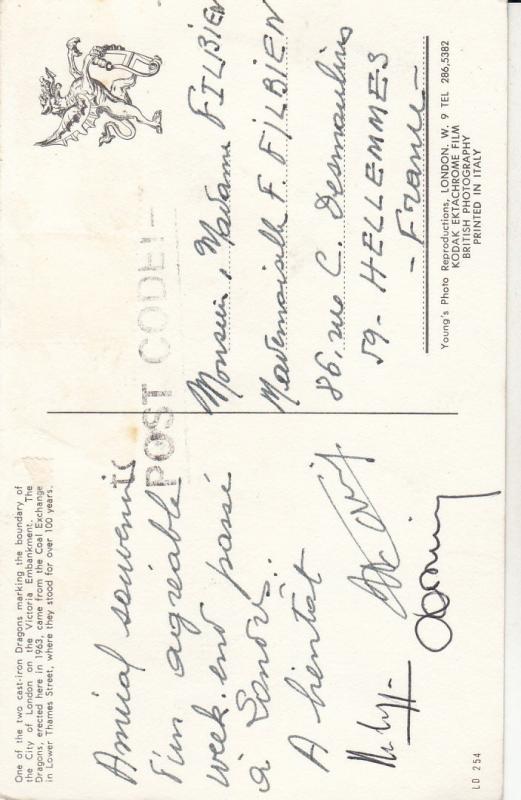 One of the two cast-iron Dragons marking the boundary of
the City of London on the Victoria Embankment. The
Dragons, erected here in 1963, came from the Coal Exchange
in Lower Thames Street, where they stood for over 100 years.
Amical souvenir
d'un agréable
week-end passé
à Londres.
A bientôt
LD 254
POST CODE!
Monsieur, Madame FILBIEN
Mademoiselle F. FILBIEN
86, rue C. Desmoulins
59- HELLEMMES
- France -
Young's Photo Reproductions, LONDON. W. 9 TEL 286,5382
KODAK EKTACHROME FILM
BRITISH PHOTOGRAPHY
PRINTED IN ITALY